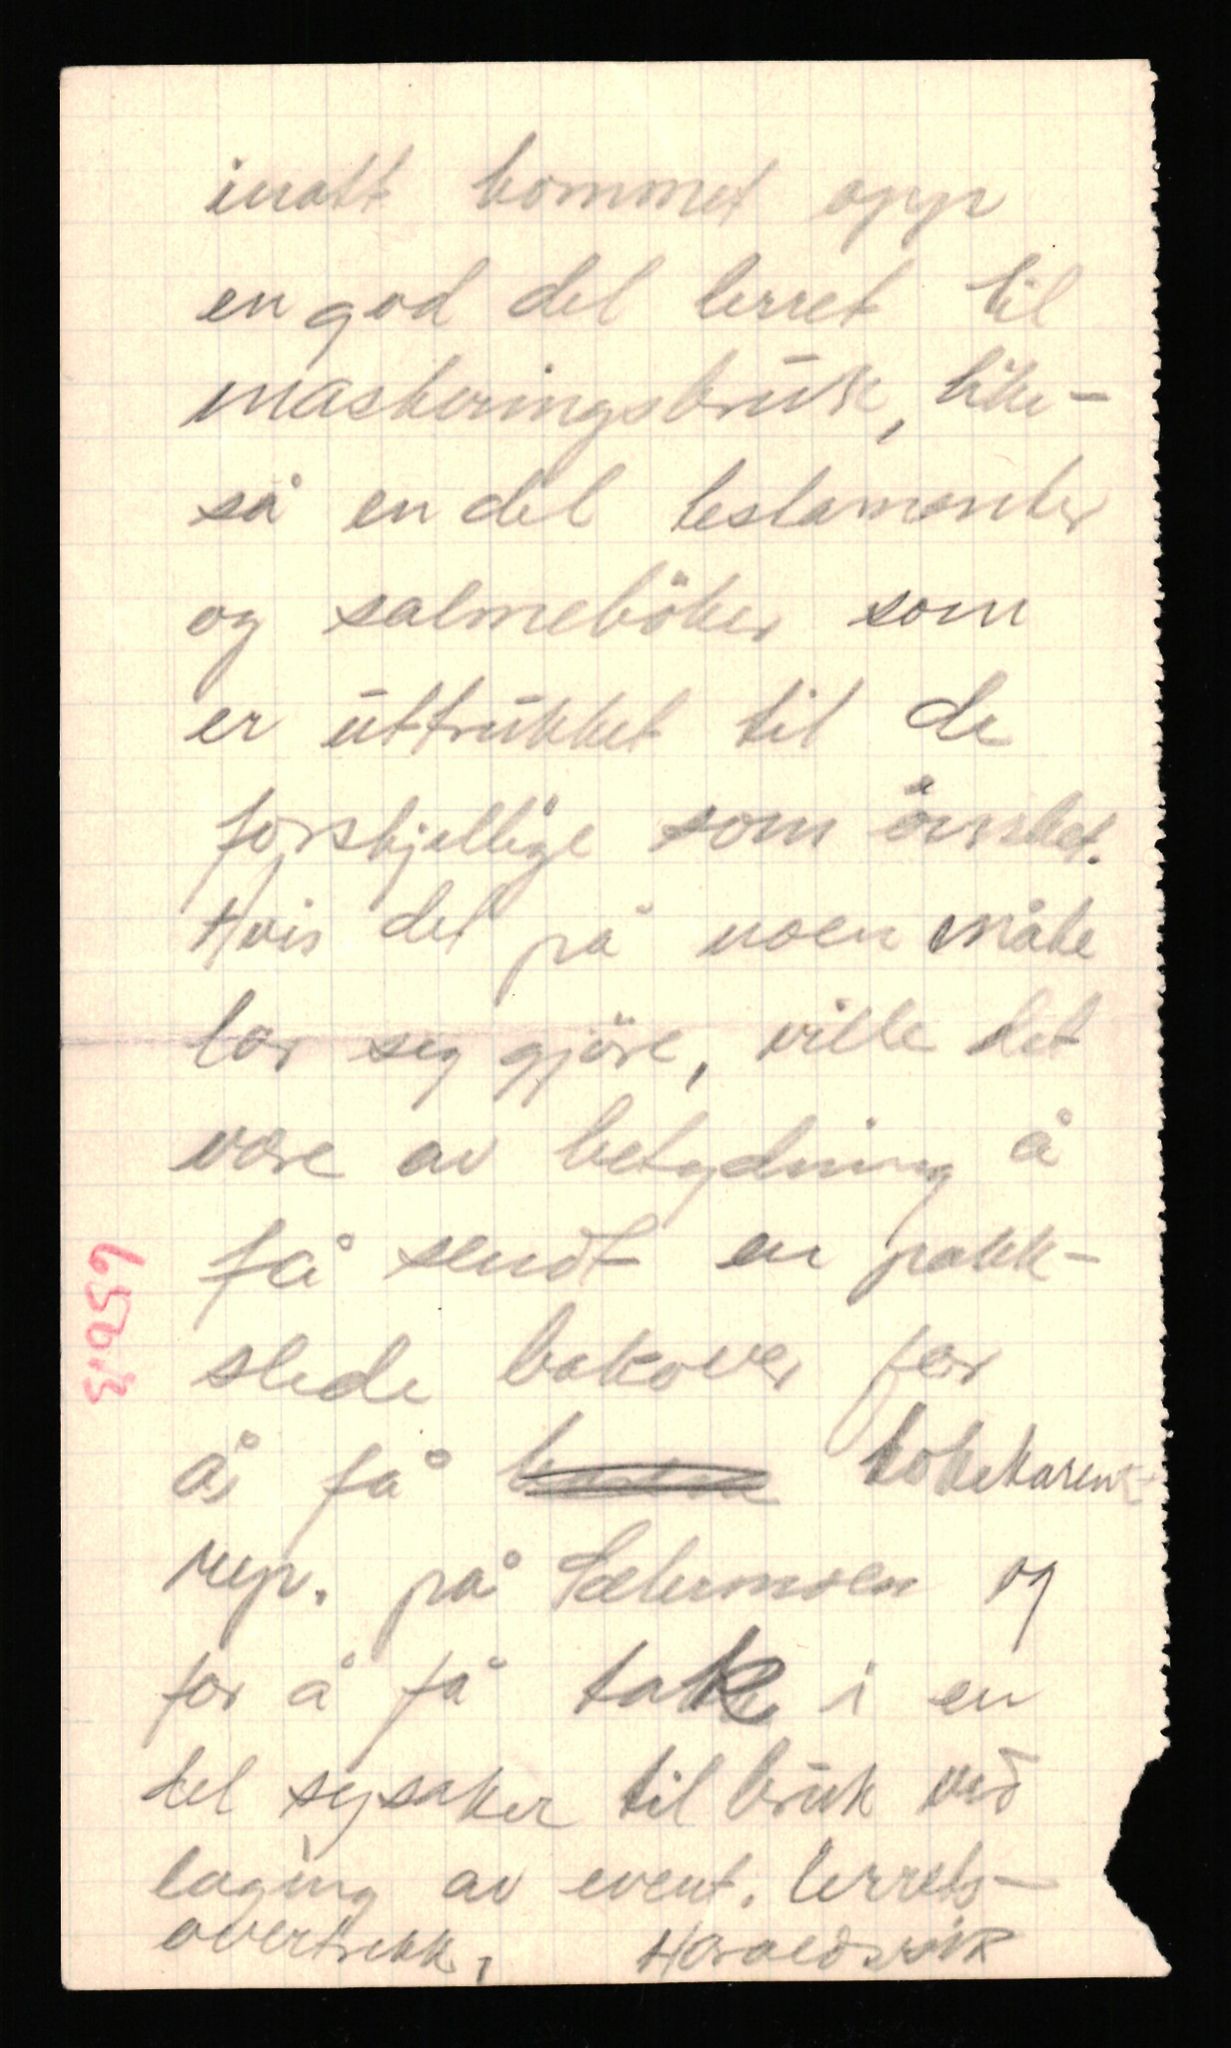 inatt kommet opp
en god del lerret til
maskeringsbruk, like-
så en del testamenter
og salmebøker som
er uttrukket til de
forskjellige som ønsket.
Hvis det på noen måte
lar seg gjøre, ville det
være av betydning å
få sendt en pakk-
slede bakover for
å få kokekaren
rep. på Sætermoen og
for å få tak i en
del sysaker til bruk ved
laging av event. lerrets-
overtrekk.